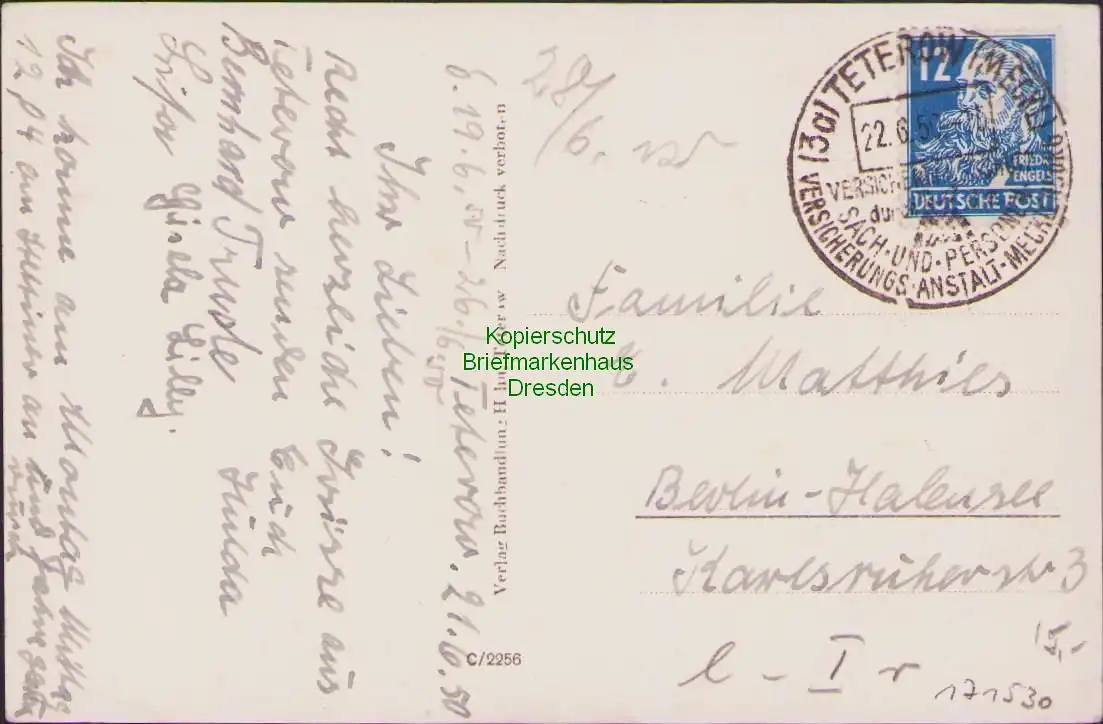 6. 19.6.50 - 26./6.50 Teterow. 21.6.50
Ihr Lieben!
Recht herzliche Grüsse aus
Teterow senden Euch
Bernhard Trude Hulda
Gisela Lilly.
Ich komme am Montag Mittag
12,04 am
an und fahre
28/6.
Verlag Buchhandlung Nachdruck verboten
C/2256
(3a) TETEROW (MECKL)
22.6.50
VERSICHERUNGS-
durch
SACH-UND-PERSONEN
VERSICHERUNGS-ANSTALT-MECKL
12
FRIEDR.
ENGELS
DEUTSCHE POST
Familie
E. Matthies
Berlin-Halensee
Karlsruherstr 3
l-I r
15,-
171530
Kopierschutz
Briefmarkenhaus
Dresden